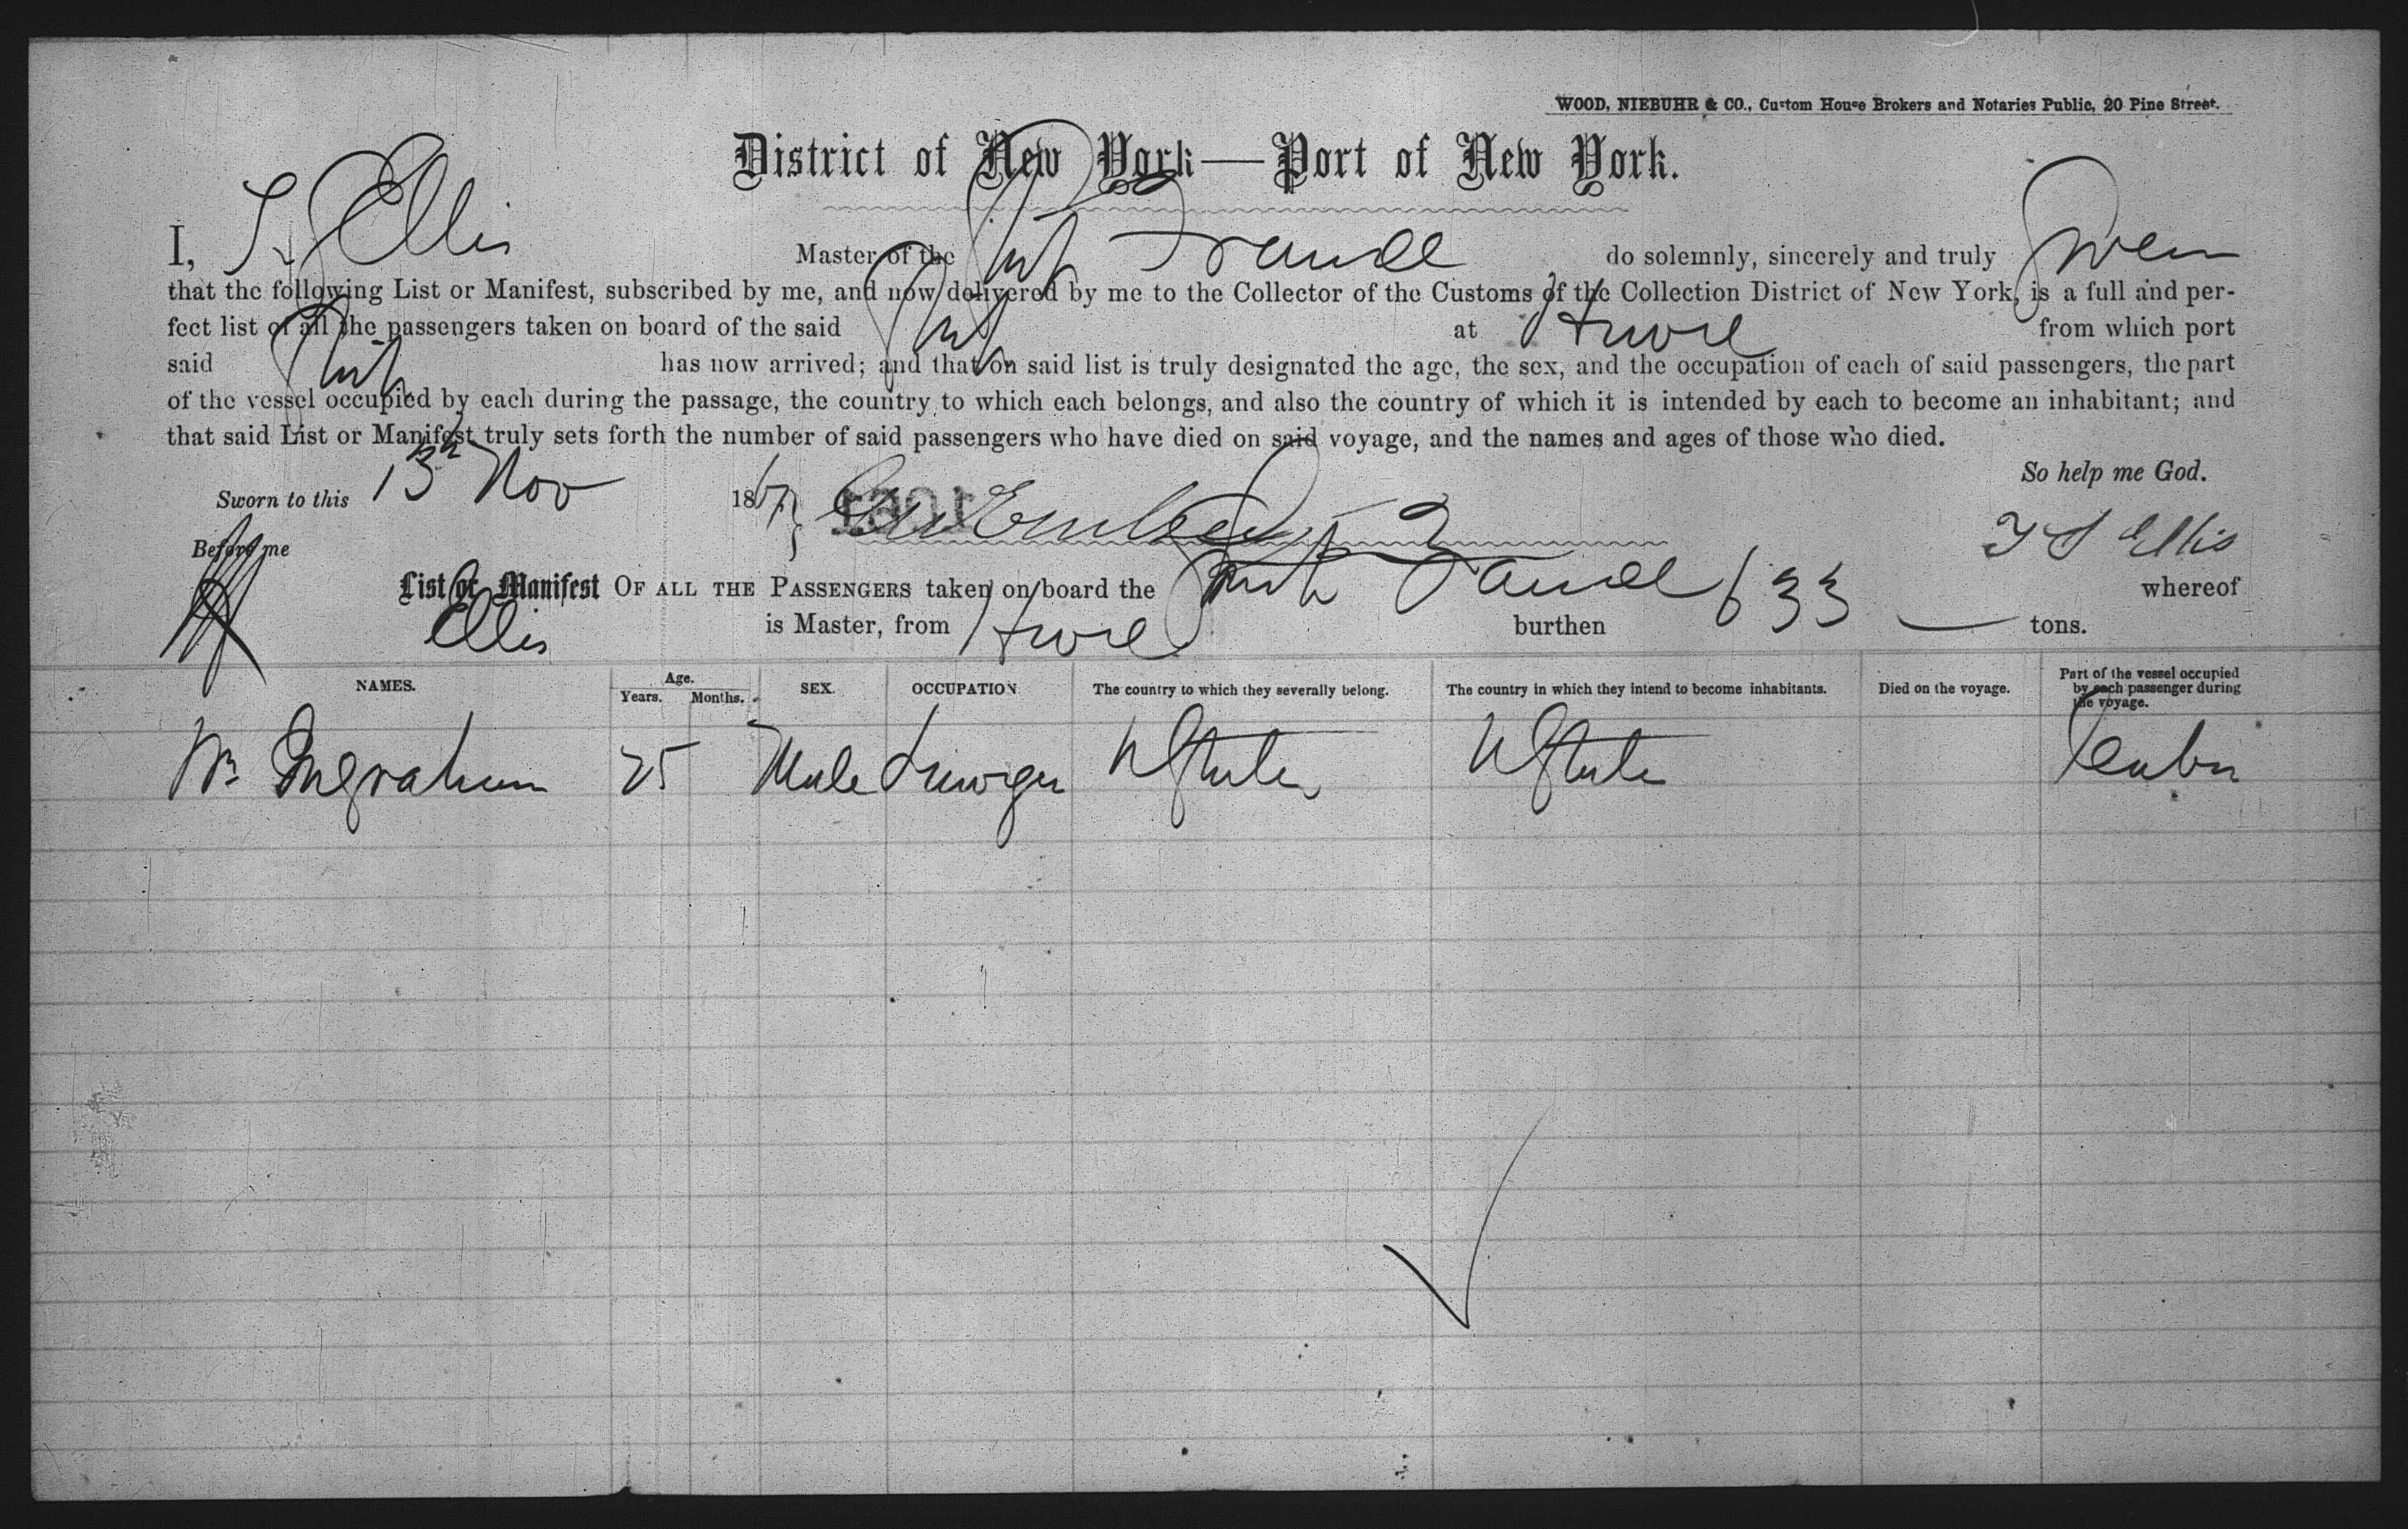 WOOD, NIEBUHR & CO., Custom House Brokers and Notaries Public, 20 Pine Street.
District of New York—Port of New York.
I, Ellis Master of the Ship do solemnly, sincerely and truly Swear
that the following List or Manifest, subscribed by me, and now delivered by me to the Collector of the Customs of the Collection District of New York, is a full and per-
fect list of all the passengers taken on board of the said Ship at Havre from which port
said Ship has now arrived; and that on said list is truly designated the age, the sex, and the occupation of each of said passengers, the part
of the vessel occupied by each during the passage, the country to which each belongs, and also the country of which it is intended by each to become an inhabitant; and
that said List or Manifest truly sets forth the number of said passengers who have died on said voyage, and the names and ages of those who died.
So help me God.
Sworn to this 13th Nov 1867
Before me Ellis
List or Manifest OF ALL THE PASSENGERS taken on board the Ship whereof
Ellis is Master, from Havre burthen 633 tons.
NAMES. Age. Years. Months. SEX. OCCUPATION. The country to which they severally belong. The country in which they intend to become inhabitants. Died on the voyage. Part of the vessel occupied by each passenger during the voyage.
Wm Ingraham 25 Male U States U States Cabin